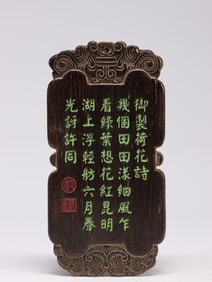 御製荷花詩
幾個田田漾細風乍
看綠葉想花紅昆明
湖上浮輕舫六月春
光訝許同